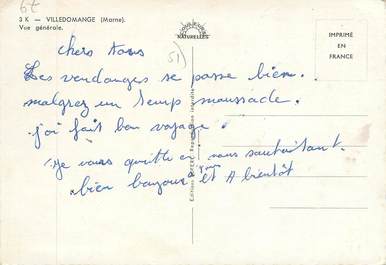 6t
3 K — VILLEDOMANGE (Marne).
Vue générale.
NATURELLES
51)
IMPRIMÉ
EN
FRANCE
chers tous
Les vendanges se passe bien.
malgrez un temp maussade.
j'ai fait bon voyage.
Je vous quitte en vous souhaitant.
bien bonjour et A bientôt